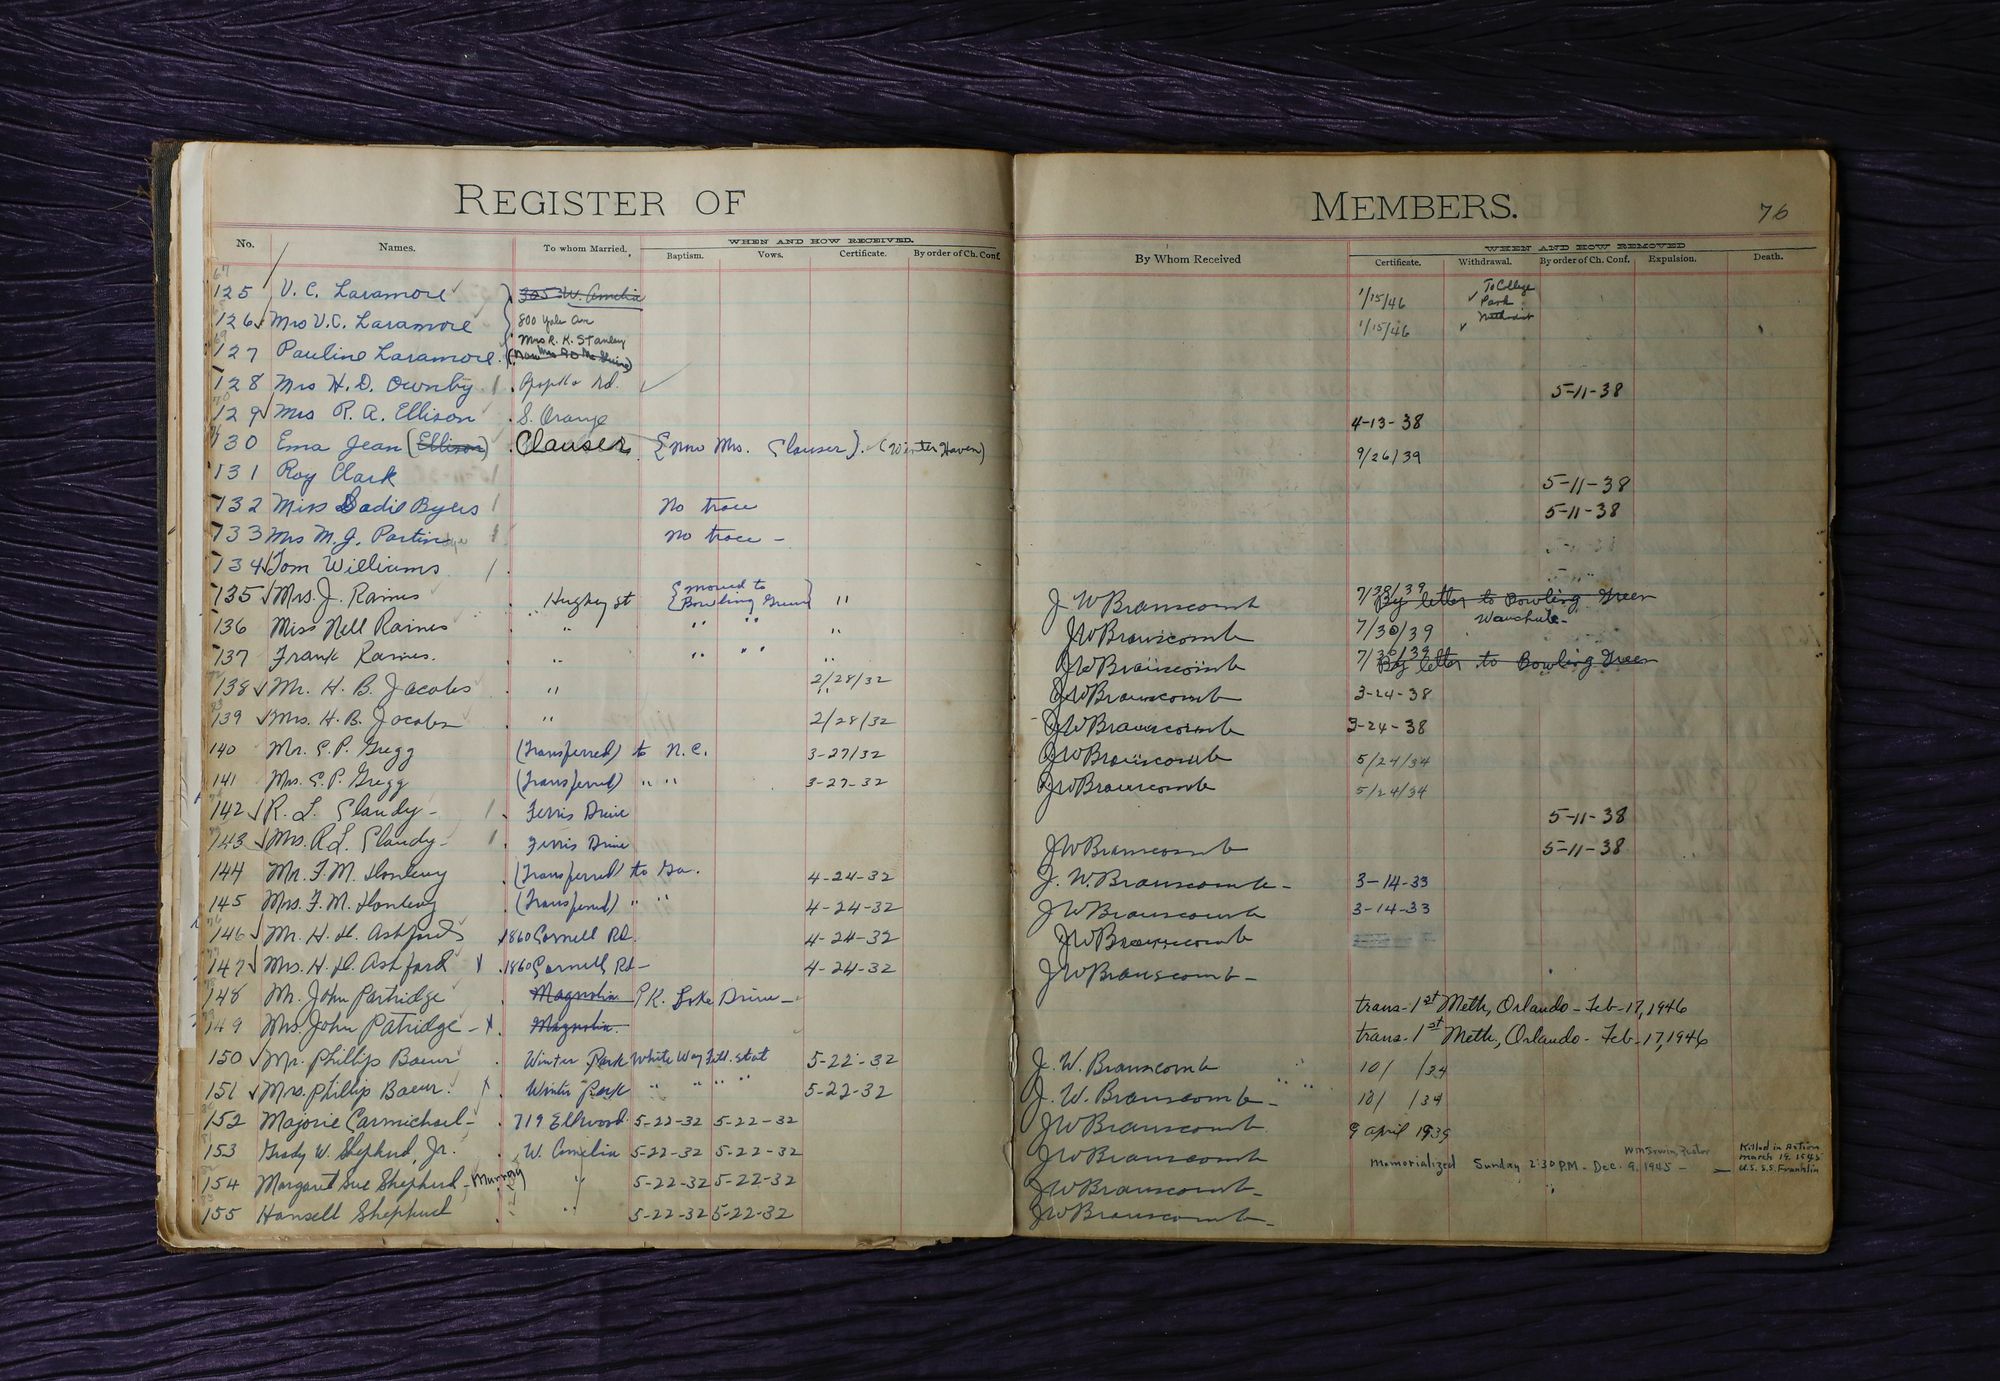 REGISTER OF MEMBERS. 76
No. Names. To whom Married. WHEN AND HOW RECEIVED. By Whom Received WHEN AND HOW REMOVED
Baptism. Vows. Certificate. By order of Ch. Conf. Certificate. Withdrawal. By order of Ch. Conf. Expulsion. Death.
125 V. C. Laramore 305 W. Amelia 1/15/46 To College Park Methodist
126 Mrs V.C. Laramore 800 Yale Ave 1/15/46
127 Pauline Laramore Mrs R. K. Stanley
128 Mrs H. D. Ownby Rd. 5-11-38
129 Mrs R. A. Ellison S. Orange 4-13-38
130 Ema Jean (Ellison) Clauser {now Mrs. Clauser}. (Winter Haven) 9/26/39
131 Roy Clark 5-11-38
132 Miss Sadie Byers No trace 5-11-38
133 Mrs M. J. Partin No trace - 5-11-38
134 Tom Williams
135 Mrs. J. Raines Hughey st {moved to Bowling Green} " J W Branscomb 7/30/39 By letter to Bowling Green
136 Miss Nell Raines " " " " JWBranscomb 7/30/39 Wauchula-
137 Frank Raines. " " " " JWBranscomb 7/30/39 By letter to Bowling Green
138 Mr. H. B. Jacobs " 2/28/32 JWBranscomb 3-24-38
139 Mrs. H. B. Jacobs " 2/28/32 JWBranscomb 3-24-38
140 Mr. E. P. Gregg (Transferred) to N.C. 3-27/32 JWBranscomb 5/24/34
141 Mrs. E. P. Gregg (Transferred) " " 3-27-32 JWBranscomb 5/24/34
142 R. L. Claudy- Ferris Drive 5-11-38
143 Mrs. R L. Claudy- Ferris Drive JWBranscomb 5-11-38
144 Mr. F. M. (Transferred) to Ga. 4-24-32 J. W. Branscomb- 3-14-33
145 Mrs. F. M. (Transferred) " " 4-24-32 JWBranscomb 3-14-33
146 Mr. H. H. Ashford 1860 Cornell Rd. 4-24-32 JWBranscomb
147 Mrs. H. H. Ashford 1860 Cornell Rd- 4-24-32 JWBranscomb-
148 Mr. John Partridge Magnolia Pk. Lake Drive- trans-1st Meth, Orlando-Feb-17, 1946
149 Mrs. John Patridge- Magnolia. trans-1st Meth, Orlando-Feb-17, 1946
150 Mr. Phillip Baeur Winter Park White Way Fill. stat 5-22-32 J. W. Branscomb 10/ /34
151 Mrs. Phillip Baeur. Winter Park " " " " 5-22-32 J. W. Branscomb- 10/ /34
152 Majorie Carmichael- 719 Ellwood 5-22-32 5-22-32 JWBranscomb 9 April 1939
153 Grady W. Shepherd, Jr. W. Amelia 5-22-32 5-22-32 JWBranscomb Memorialized Sunday 2:30 P.M. - Dec. 9, 1945 - Wm Irwin, Pastor Killed in Action March 19, 1945 U.S.S. Franklin
154 Margaret Sue Shepherd- Murray " 5-22-32 5-22-32 JWBranscomb-
155 Hansell Shepherd " 5-22-32 5-22-32 JWBranscomb-